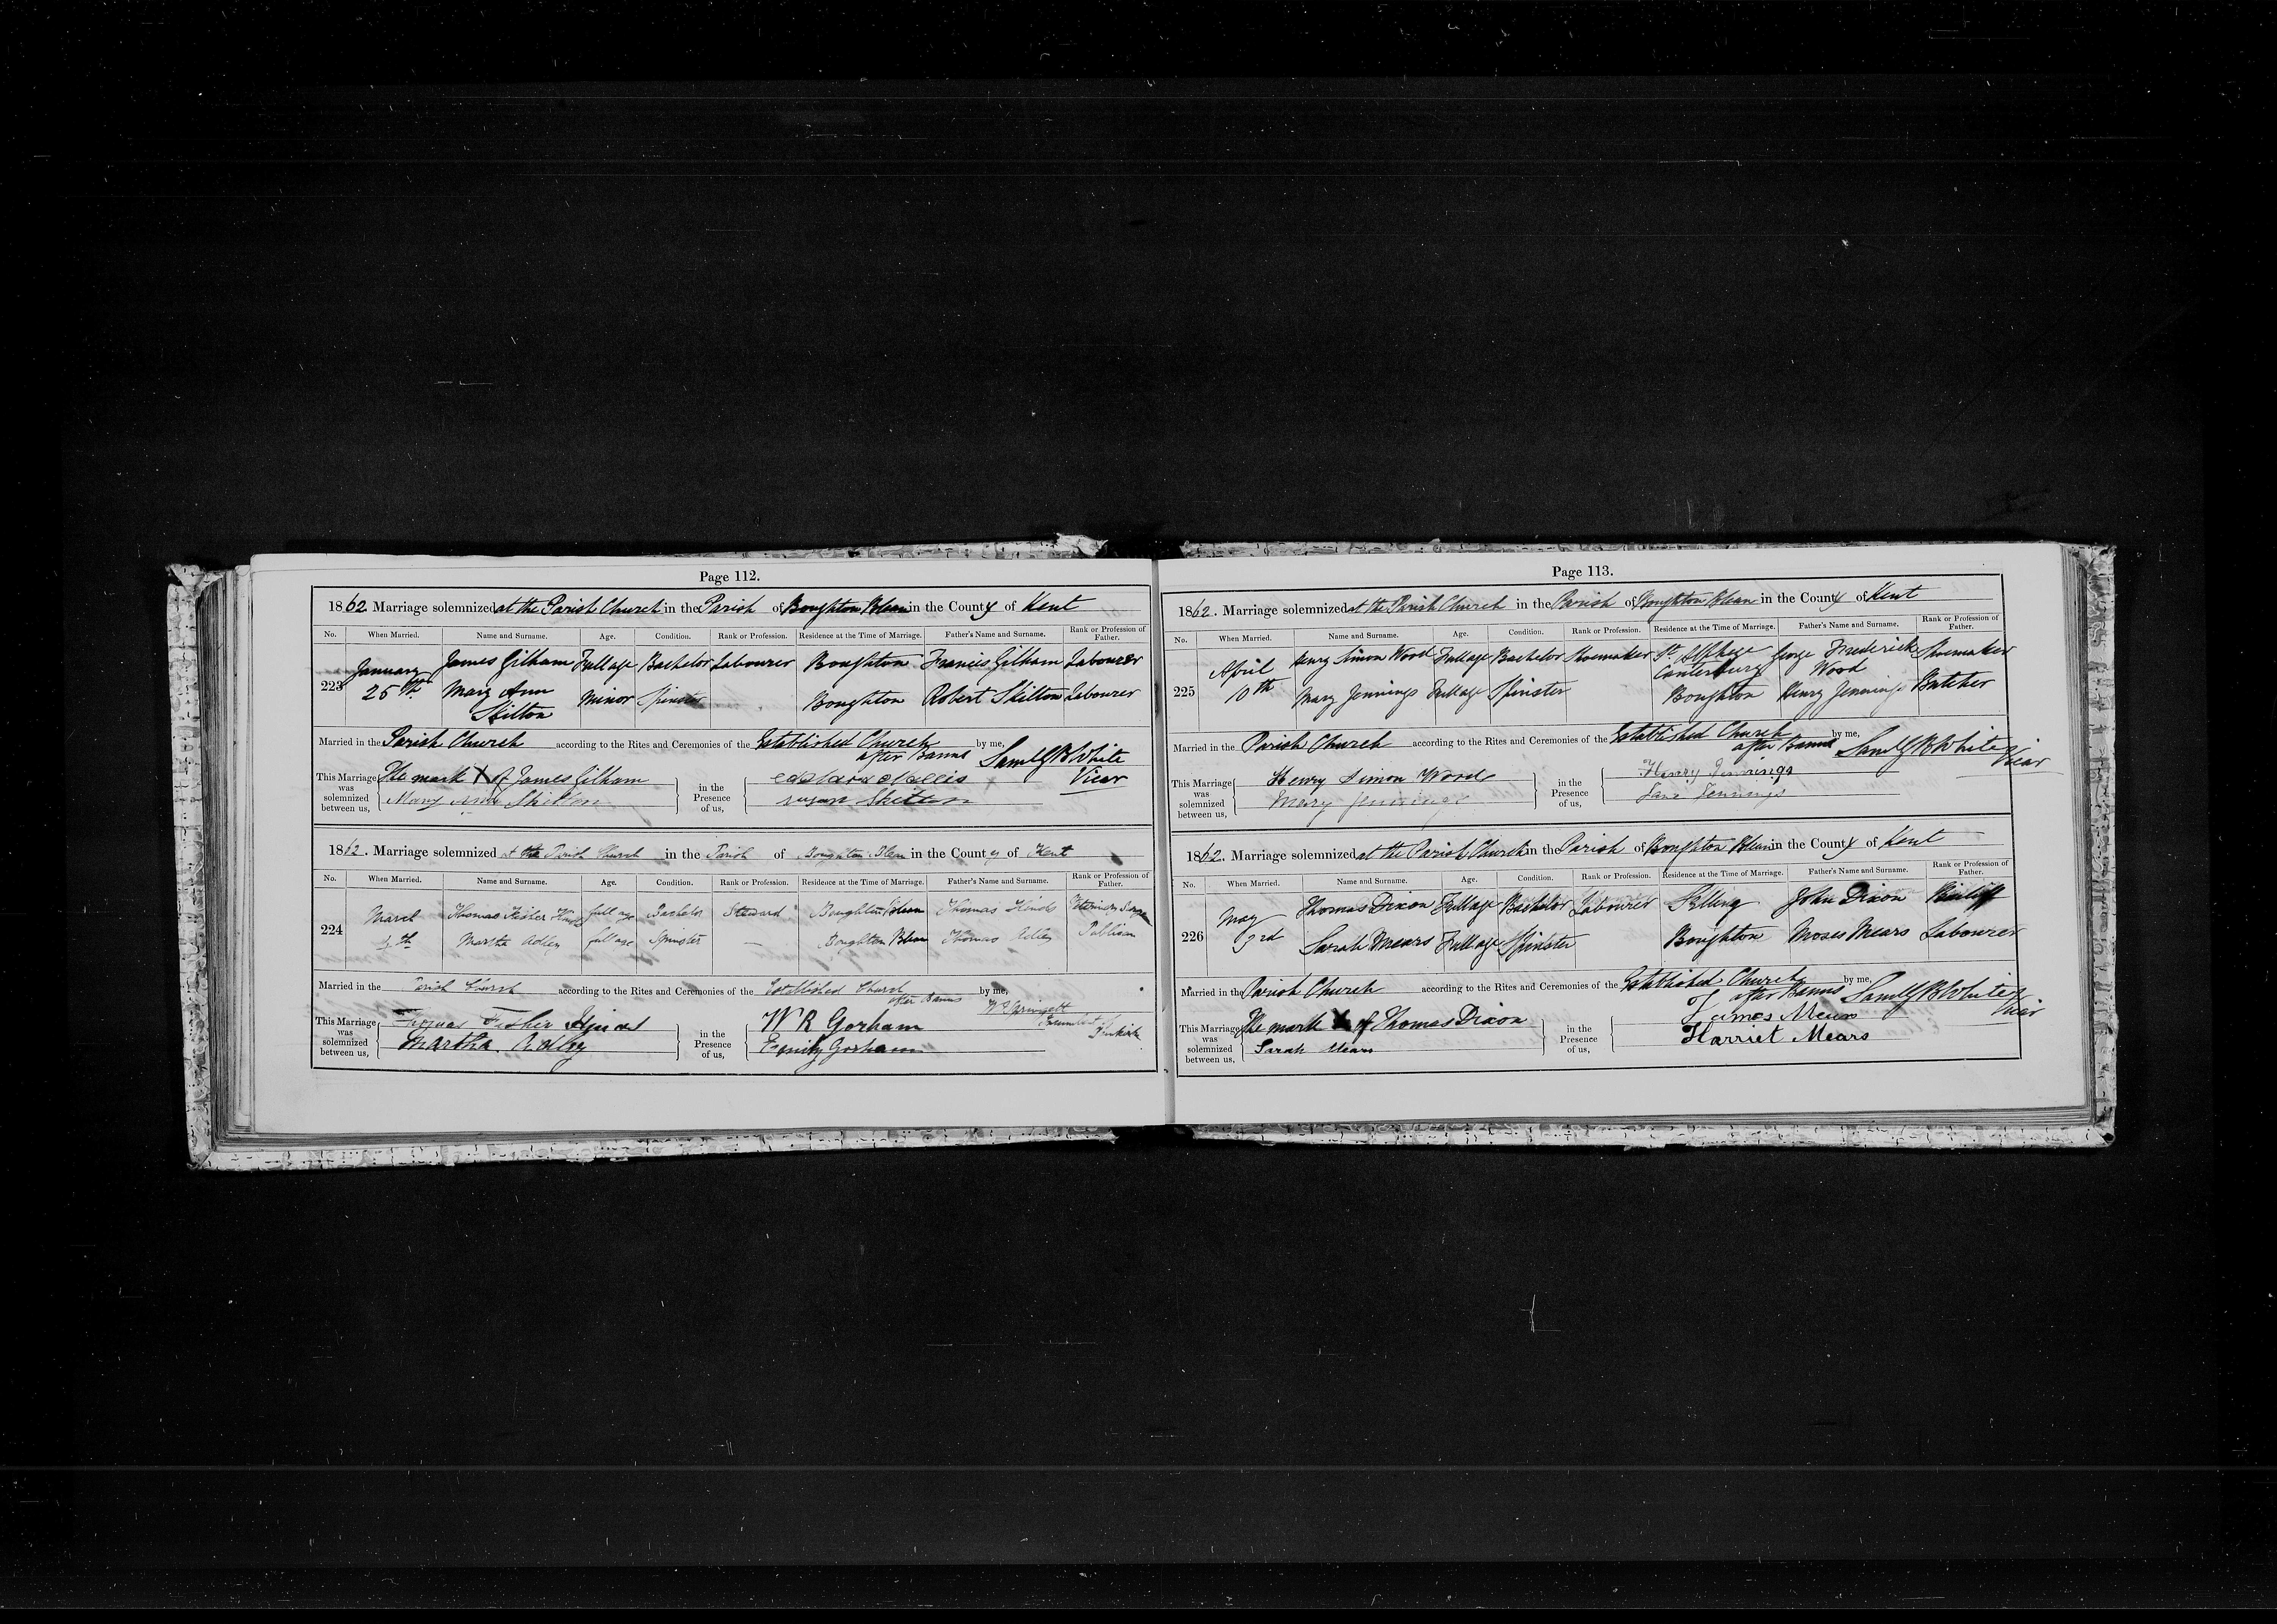 Page 112.
1862. Marriage solemnized at the Parish Church in the Parish of Boughton Blean in the County of Kent
No. When Married. Name and Surname. Age. Condition. Rank or Profession. Residence at the Time of Marriage. Father's Name and Surname. Rank or Profession of Father.
223 January 25th James Gilham Full age Bachelor Labourer Boughton Francis Gilham Labourer
Mary Ann Skilton Minor Spinster Boughton Robert Skilton Labourer
Married in the Parish Church according to the Rites and Ceremonies of the Established Church after Banns by me, Vicar
This Marriage was solemnized between us, The mark X of James Gilham
Mary Ann Skilton
in the Presence of us,
Susan Skilton
1862. Marriage solemnized at the Parish Church in the Parish of Boughton Blean in the County of Kent
No. When Married. Name and Surname. Age. Condition. Rank or Profession. Residence at the Time of Marriage. Father's Name and Surname. Rank or Profession of Father.
224 March Thomas Fisher Hinds full age Bachelor Steward Boughton Blean Thomas Hinds Veterinary
Martha Adley full age Spinster — Boughton Blean Thomas Adley Publican
Married in the Parish Church according to the Rites and Ceremonies of the Established Church after Banns by me,
This Marriage was solemnized between us, Thomas Fisher Hinds
Martha Adley
in the Presence of us, W R Gorham
Emily Gorham
Page 113.
1862. Marriage solemnized at the Parish Church in the Parish of Boughton Blean in the County of Kent
No. When Married. Name and Surname. Age. Condition. Rank or Profession. Residence at the Time of Marriage. Father's Name and Surname. Rank or Profession of Father.
225 April 10th Henry Simon Wood Full age Bachelor Shoemaker St. Alphege Canterbury George Frederick Wood Shoemaker
Mary Jennings Full age Spinster Boughton Henry Jennings Butcher
Married in the Parish Church according to the Rites and Ceremonies of the Established Church after Banns by me, Vicar
This Marriage was solemnized between us, Henry Simon Wood
Mary Jennings
in the Presence of us, Henry Jennings
Jane Jennings
1862. Marriage solemnized at the Parish Church in the Parish of Boughton Blean in the County of Kent
No. When Married. Name and Surname. Age. Condition. Rank or Profession. Residence at the Time of Marriage. Father's Name and Surname. Rank or Profession of Father.
226 May Thomas Dixon Full age Bachelor Labourer Selling John Dixon Bailiff
Sarah Mears Full age Spinster Boughton Moses Mears Labourer
Married in the Parish Church according to the Rites and Ceremonies of the Established Church after Banns by me, Vicar
This Marriage was solemnized between us, The mark X of Thomas Dixon
Sarah Mears
in the Presence of us, James Mears
Harriet Mears